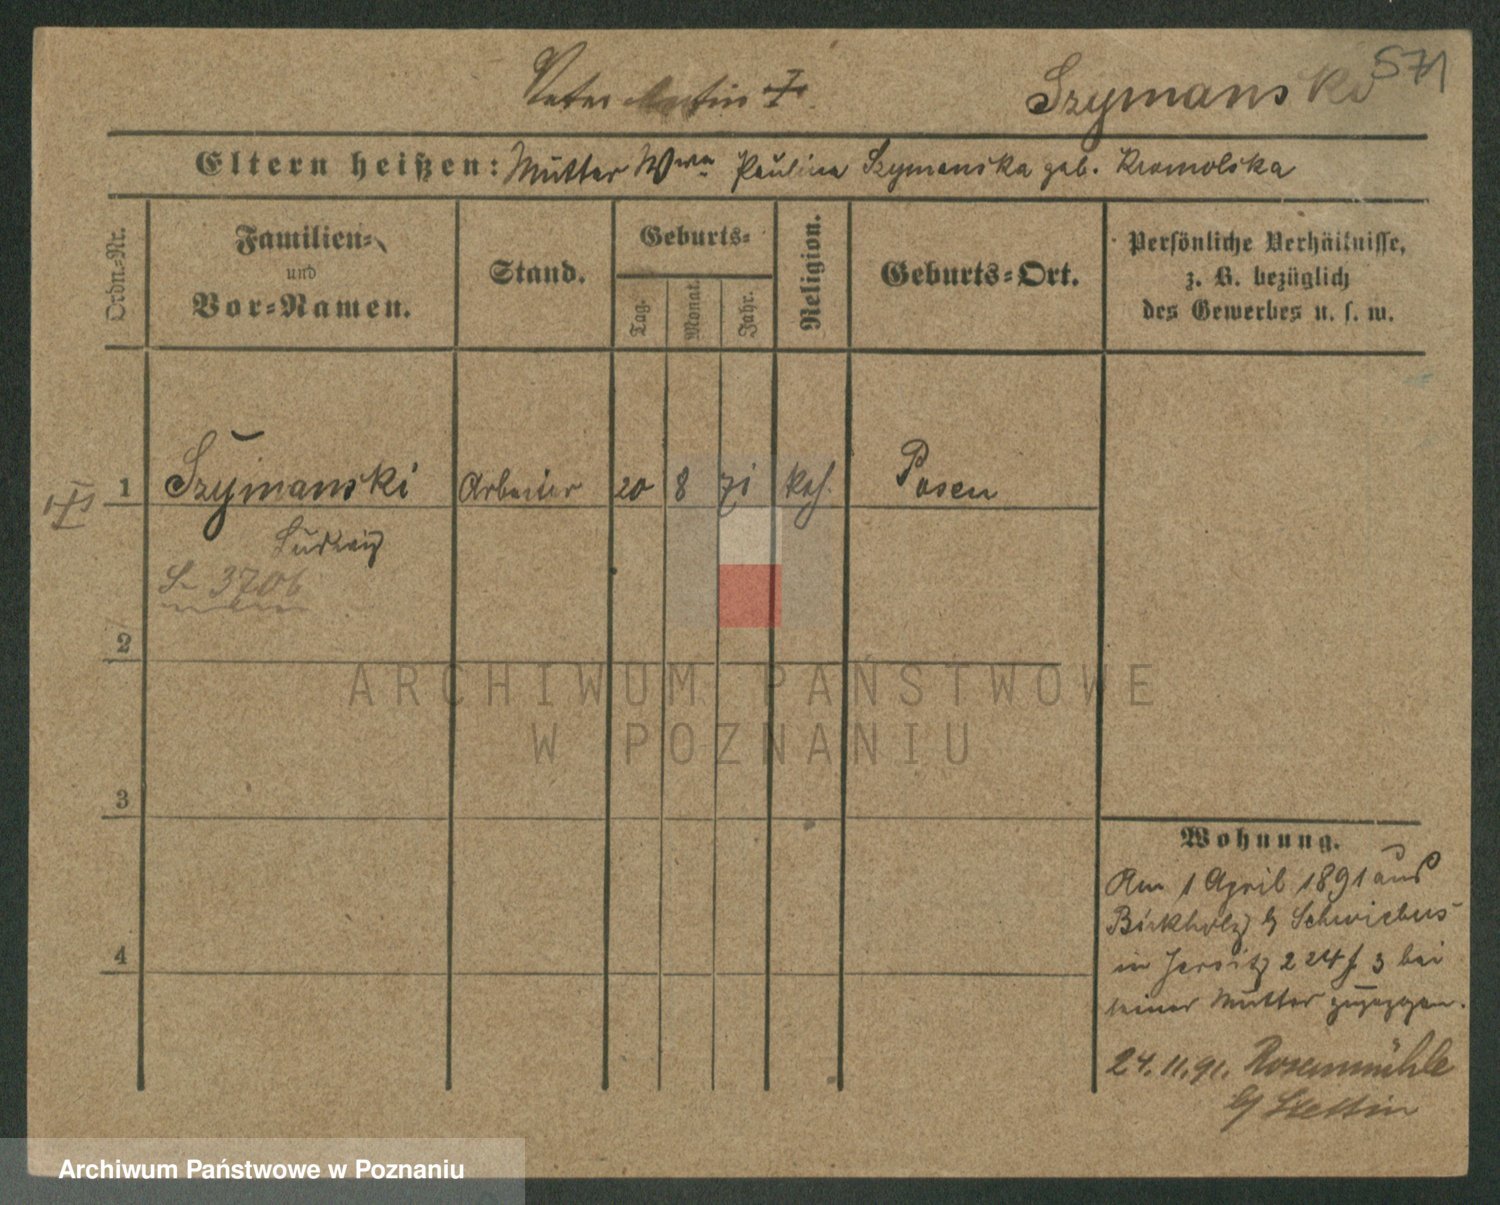 571
Szymanski
Vater Martin †
Eltern heißen: Mutter Wwe Paulina Szymanska geb. Kromolska
Ordn.-Nr.
Familien-
und
Vor-Namen.
Stand.
Geburts-
Tag.
Monat.
Jahr.
Religion.
Geburts-Ort.
Persönliche Verhältnisse,
z. B. bezüglich
des Gewerbes u. s. w.
1 Szymanski Arbeiter 20 8 71 kath. Posen
Ludwig
S. 3706
2
3
4
Wohnung.
Am 1 April 1891 aus
Birkholz b/ Schwiebus
in Jersitz 224 f 3 bei
seiner Mutter zugezogen.
24.11.91. Rosenmühle
b/ Stettin
ARCHIWUM PAŃSTWOWE
W POZNANIU
Archiwum Państwowe w Poznaniu